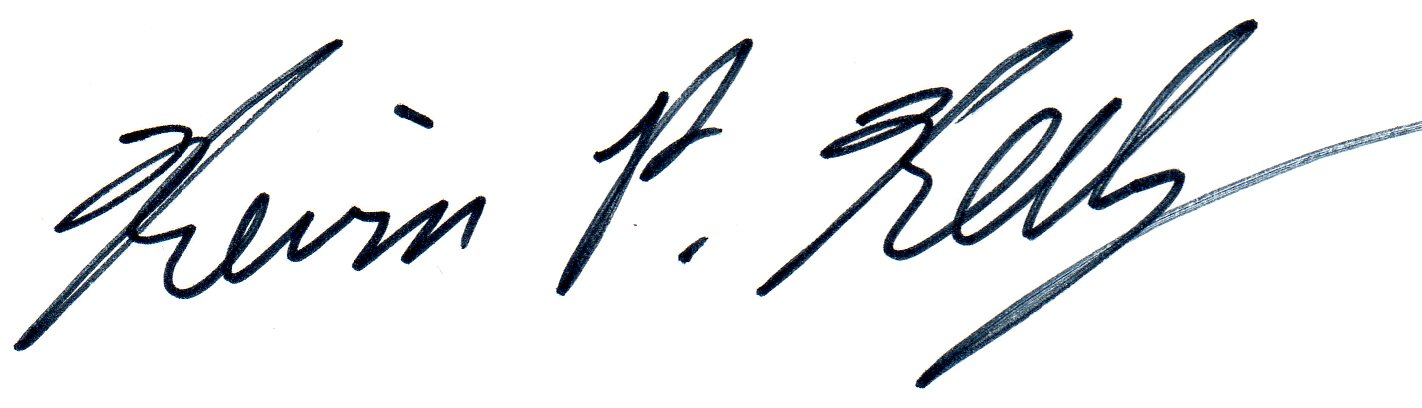 Kevin P. Kelly